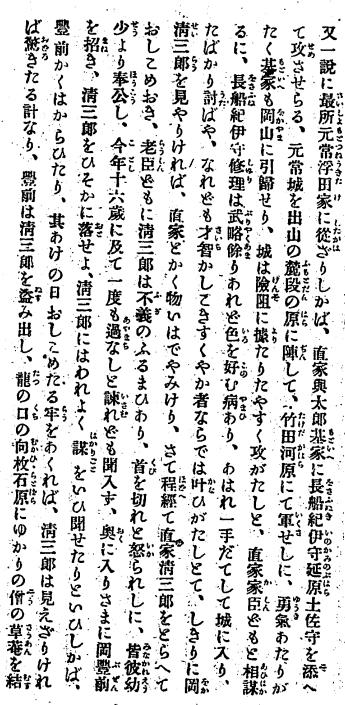 又一說に最所元常浮田家に從ざりしかば、直家與太郎基家に長船紀伊守延原土佐守を添へ
て攻させらる、元常城を出山の麓段の原に陣して、竹田河原にて軍せしに、勇氣あたりが
たく基家も岡山に引歸せり、城は險阻に據たりたやすく攻がたしと、直家家臣どもと相謀
るに、長船紀伊守修理は武略餘りあれど色を好む病あり、あはれ一手だてして城に入り、
たばかり討ばや、なれども才智かしこきすくやか者ならでは叶ひがたしとて、しきりに岡
清三郎を見やりければ、直家とかく物いはでやみけり、さて程經て直家清三郎をとらへて
おしこめおき、老臣どもに清三郎は不義のふるまひあり、首を切れと怒られしに、皆彼幼
少より奉公し、今年十六歲に及て一度も過なしと諫れども聞入ず、奥に入りさまに岡豐前
を招き、清三郎をひそかに落せよ、清三郎にはわれよく謀をいひ聞せたりといひしかば、
豐前かくはからひたり、其あけの日おしこめたる牢をあくれば、清三郎は見えざりけれ
ば驚きたる計なり、豐前は清三郎を盗み出し、龍の口の向枚石原にゆかりの僧の草菴を結